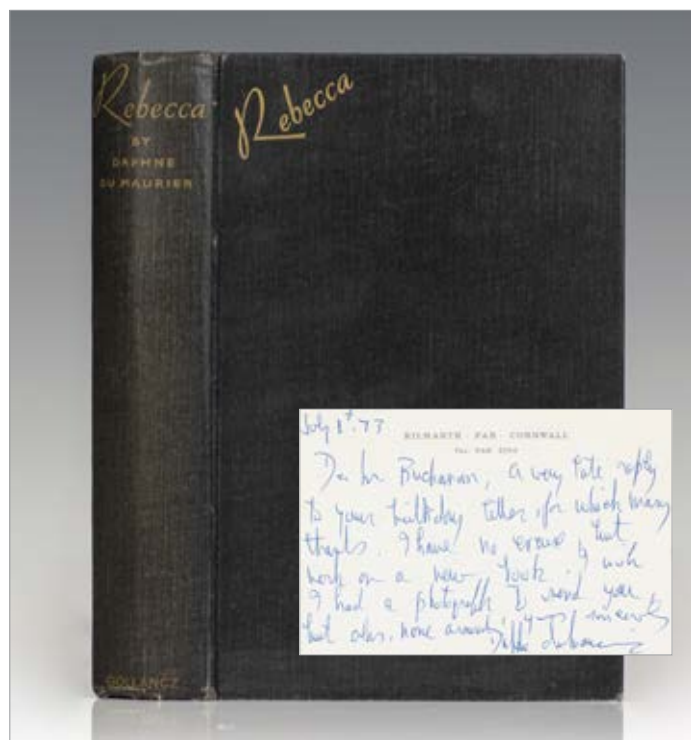 Rebecca
BY
DAPHNE
DU MAURIER
GOLLANCZ
Rebecca
July 1st. 73
KILMARTH · PAR · CORNWALL
Buchanan, a very late reply
to your birthday letter, for which many
thanks. I have no excuse, but
work on a new book. I wish
I had a photograph to send you
but alas, none around, yours sincerely